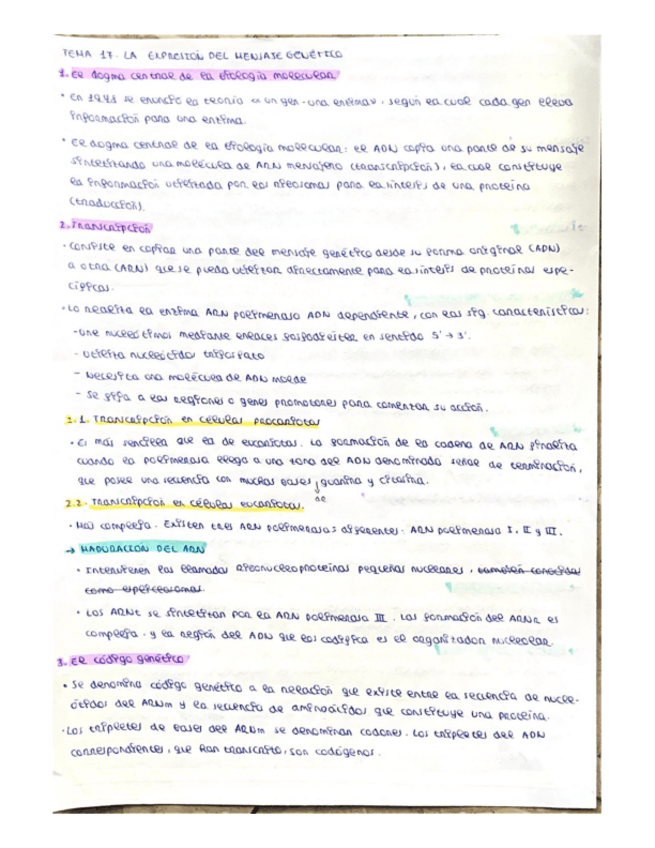 TEMA 17. LA EXPRESIÓN DEL MENSAJE GENÉTICO
1. El dogma central de la biología molecular
• En 1948 se enunció la teoría "un gen-una enzima", según la cual cada gen lleva
información para una enzima.
• El dogma central de la biología molecular: el ADN copia una parte de su mensaje
sintetizando una molécula de ARN mensajero (transcripción), la cual constituye
la información utilizada por los ribosomas para la síntesis de una proteína
(traducción).
2. Transcripción
• Consiste en copiar una parte del mensaje genético desde su forma original (ADN)
a otra (ARN) que se pueda utilizar directamente para la síntesis de proteínas espe-
cíficas.
• Lo realiza la enzima ARN polimerasa ADN dependiente, con las sig. características:
- Une nucleótidos mediante enlaces fosfodiéster en sentido 5' → 3'.
- Utiliza nucleótidos trifosfato
- Necesita una molécula de ADN molde
- Se fija a las regiones o genes promotores para comenzar su acción.
2.1. Transcripción en células procariotas
• Es más sencilla que la de eucariotas. La formación de la cadena de ARN finaliza
cuando la polimerasa llega a una zona del ADN denominada señal de terminación,
que posee una secuencia con muchas bases guanina y citosina.
de
2.2. Transcripción en células eucariotas.
• Más compleja. Existen tres ARN polimerasas diferentes: ARN polimerasa I, II y III.
→ MADURACIÓN DEL ARN
• Intervienen las llamadas ribonucleoproteínas pequeñas nucleares, también conocidas
como espliceosomas
• Los ARNt se sintetizan por la ARN polimerasa III. La formación del ARNr es
compleja y la región del ADN que los codifica es el organizador nucleolar.
3. El código genético
• Se denomina código genético a la relación que existe entre la secuencia de nucle-
ótidos del ARNm y la secuencia de aminoácidos que constituye una proteína.
• Los tripletes de bases del ARNm se denominan codones. Los tripletes del ADN
correspondientes, que han transcrito, son codógenos.